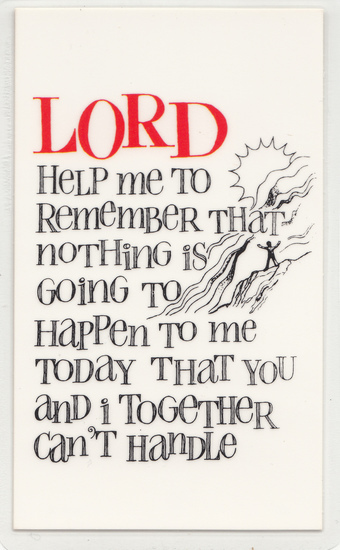 LORD
HELP me TO
Rememember THAT
noTHinG iS
GoinG TO
Happen TO me
TODAY THAT YOU
anD i TOGETHER
can'T HanDLe